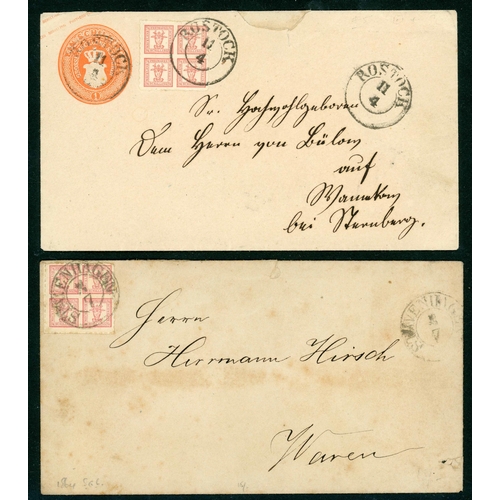 ROSTOCK
11
4
ROSTOCK
11
4
ROSTOCK
11
4
Sr. Hochwohlgeboren
Dem Herrn von Bülow
auf
bei Sternberg.
STAVENHAGEN
STAVENHAGEN
Herrn
Herrmann Hirsch
Waren